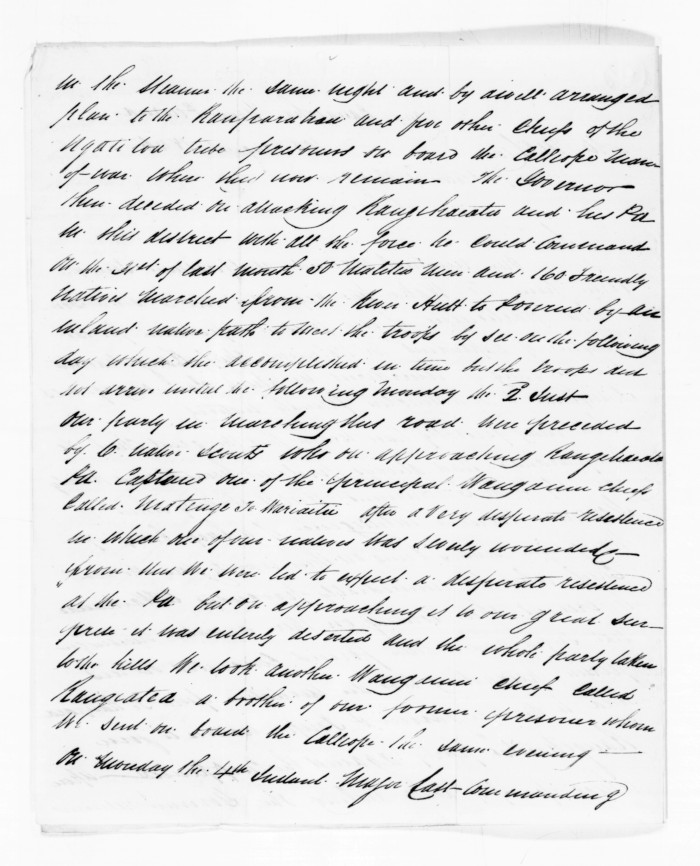 in the steamer the same night and by a well arranged
plan to the Rauparahaa and five other Chiefs of the
Ngati toa tribe presoners on board the Calliope Man
of war when they now remain The Governor
then decided on attacking Rangihaeata and his Pa
in this district with all the force he could Command
On the 31st of last month 50 Malitia Men and 160 Friendly
natives Marched from the River Hutt to Porirua by an
inland native path to meet the troops by sea on the following
day which she accomplished in time but the troops did
not arrive untill the following Monday the 2 Inst
Our party in Marching this road were preceded
by 6 native Scouts who on approaching Rangihaeata
Pa Captured one of the principal Wanganui chiefs
Called Matinge To Wariaitu after a very disperate resestence
in which one of our natives was severly wounded
from this we were led to expect a desperate resestence
at the Pa but on approaching it to our great sur-
prise it was enterely deserted and the whole party taken
to the hills We took another Wanganui chief Called
Rangiatea a brother of our former presoner whom
We sent on board the Calliope the same evening —
On Monday the 4th Instant Major Last Commanding